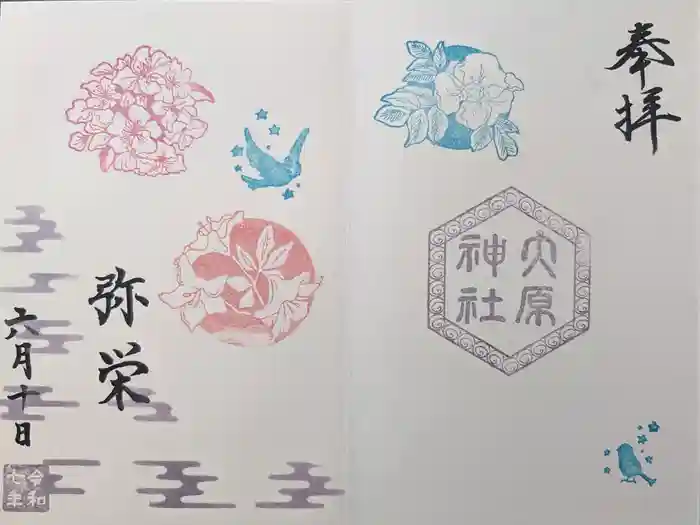 奉拝
大原
神社
弥栄
六月十日
令和
七年